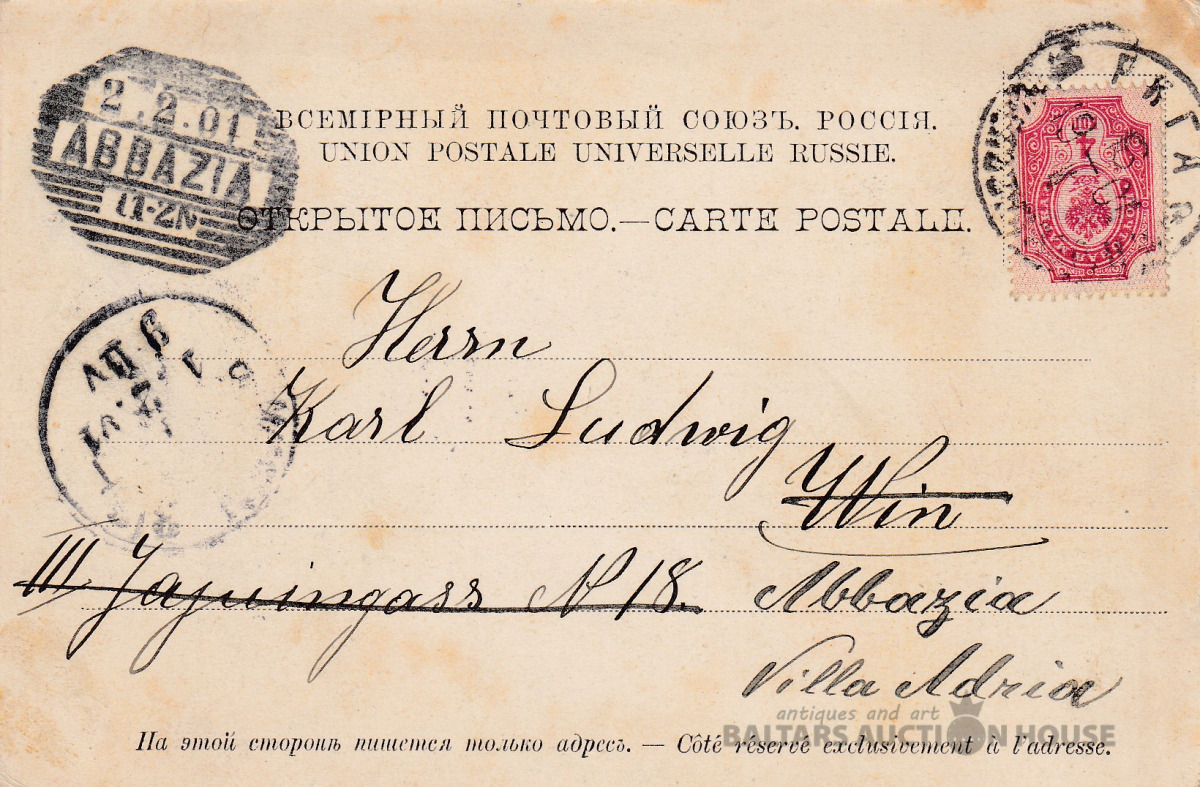 ВСЕМІРНЫЙ ПОЧТОВЫЙ СОЮЗЪ. РОССІЯ.
UNION POSTALE UNIVERSELLE RUSSIE.
ОТКРЫТОЕ ПИСЬМО.—CARTE POSTALE.
2.2.01
ABBAZIA
11-ZN
РИГА
Herrn
Karl Ludwig
Win
III N 18. Abbazia
Villa Adria
antiques and art
BALTARS AUCTION HOUSE
На этой сторонѣ пишется только адресъ. — Côté réservé exclusivement à l'adresse.